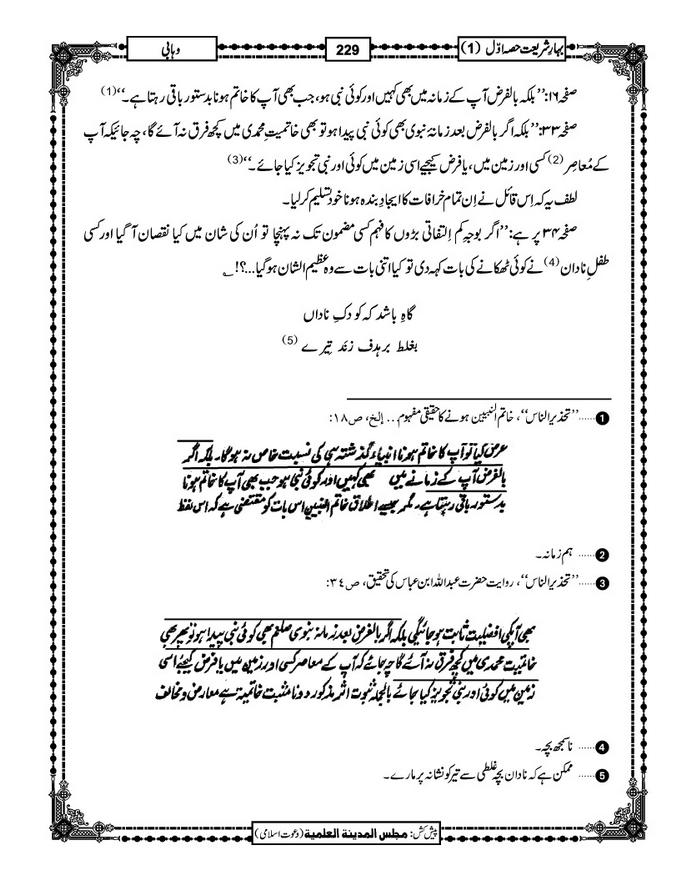 بہارِشریعت حصہ اوّل (1)
229
وہابی
صفحہ۱۶: ’’بلکہ بالفرض آپ کے زمانہ میں بھی کہیں اور کوئی نبی ہو، جب بھی آپ کا خاتم ہونا بدستور باقی رہتا ہے۔‘‘(1)
صفحہ۳۳: ’’بلکہ اگر بالفرض بعد زمانۂ نبوی بھی کوئی نبی پیدا ہو تو بھی خاتمیتِ محمدی میں کچھ فرق نہ آئے گا، چہ جائیکہ آپ
کے مُعاصِر(2) کسی اور زمین میں، یا فرض کیجیے اسی زمین میں کوئی اور نبی تجویز کیا جائے۔‘‘(3)
لطف یہ کہ اِس قائل نے اِن تمام خرافات کا ایجادِ بندہ ہونا خود تسلیم کرلیا۔
صفحہ ۳۴ پر ہے: ’’اگر بوجہِ کم اِلتفاتی بڑوں کا فہم کسی مضمون تک نہ پہنچا تو اُن کی شان میں کیا نقصان آ گیا اور کسی
طفلِ نادان(4) نے کوئی ٹھکانے کی بات کہہ دی تو کیا اتنی بات سے وہ عظیم الشان ہو گیا...؟! ؎
گاہِ باشد کہ کودکِ ناداں
بغلط بر ہدف زند تِیرے (5)
1 ......’’تحذیر الناس‘‘، خاتم النبیین ہونے کا حقیقی مفہوم... إلخ، ص۱۸:
عرض کیا تو آپ کا خاتم ہونا انبیاء گذشتہ ہی کی نسبت خاص نہ ہوگا۔ بلکہ اگر
بالفرض آپ کے زمانے میں بھی کہیں اور کوئی نبی ہو جب بھی آپ کا خاتم ہونا
بدستور باقی رہتا ہے۔ مگر جیسے اطلاق خاتم النبیین اس بات کو مقتضی ہے کہ اس لفظ
2 ...... ہم زمانہ۔
3 ......’’تحذیر الناس‘‘، روایت حضرت عبد اللہ ابن عباس کی تحقیق، ص۳۴:
بھی آپکی افضلیت ثابت ہو جائیگی بلکہ اگر بالفرض بعد زمانہ نبوی صلعم بھی کوئی نبی پیدا ہو تو پھر بھی
خاتمیت محمدی میں کچھ فرق نہ آئے گا چہ جائے کہ آپ کے معاصر کسی اور زمین میں یا فرض کیجئے اسی
زمین میں کوئی اور نبی تجویز کیا جائے بالجملہ ثبوت اثر مذکور دونا مثبت خاتمیت ہے معارض و مخالف
4 ...... ناسمجھ بچہ۔
5 ...... ممکن ہے کہ نادان بچہ غلطی سے تیر کو نشانہ پر مارے۔
پیش کش: مجلس المدينة العلمية (دعوت اسلامی)